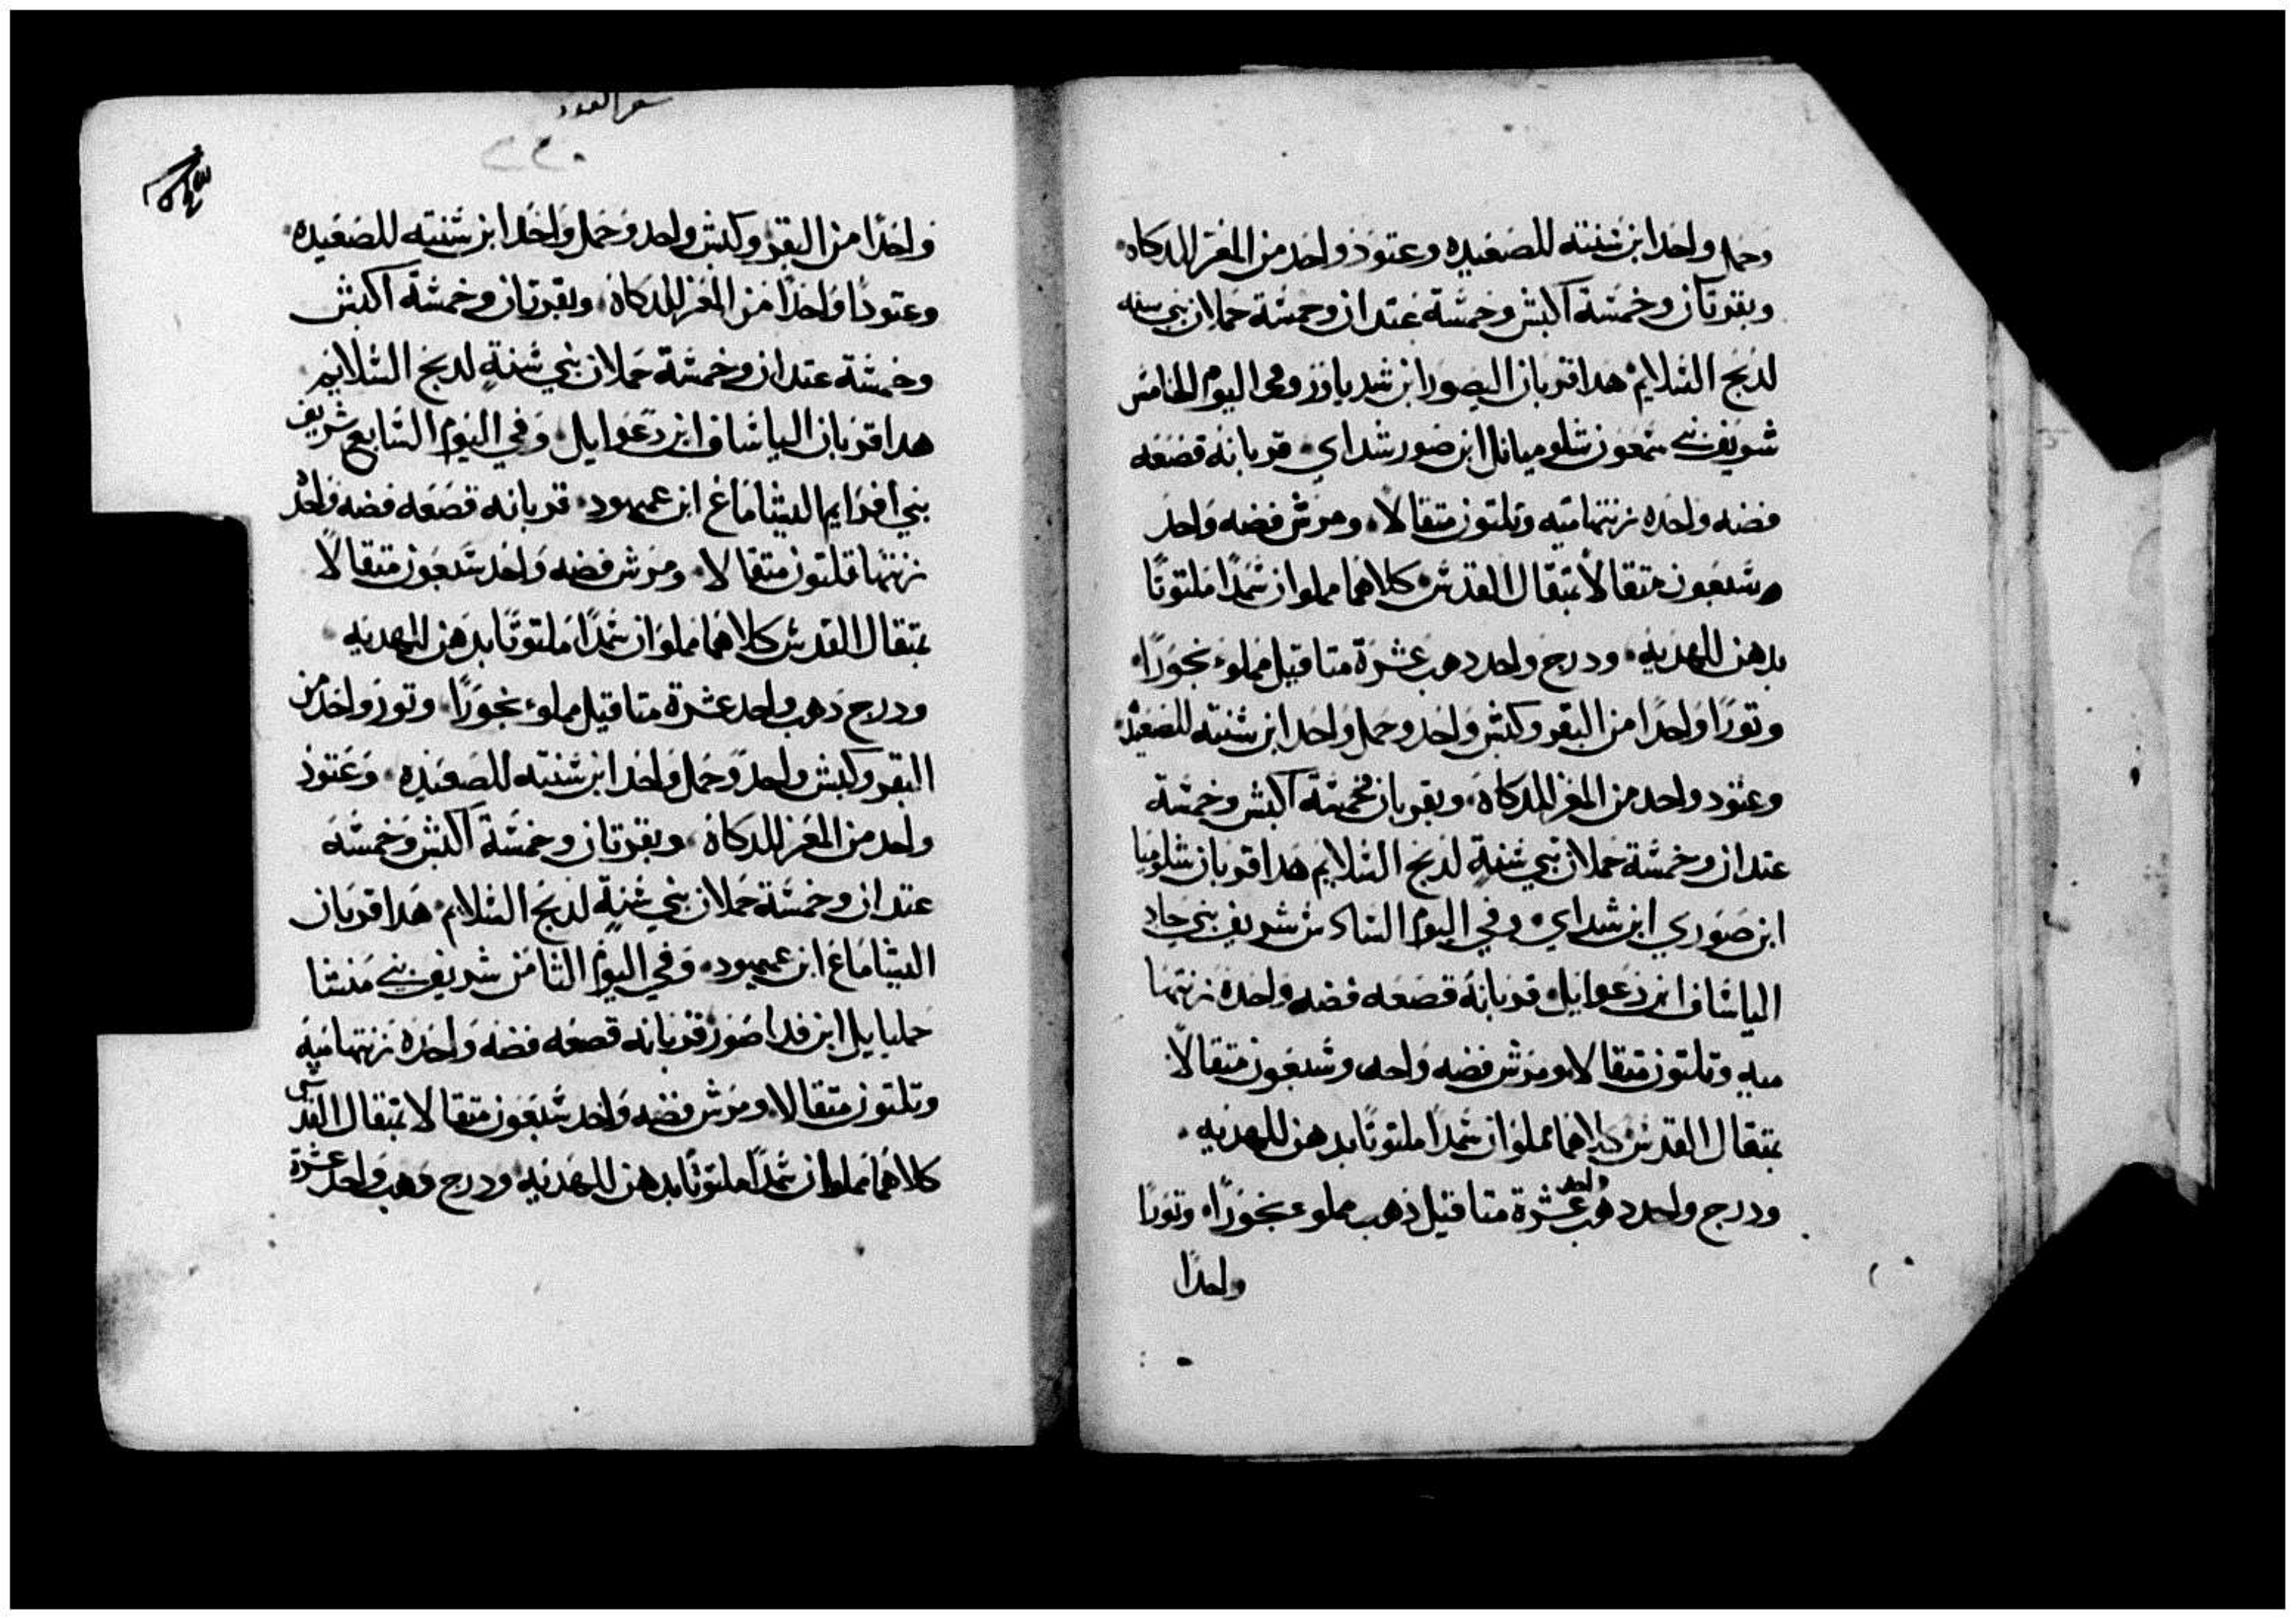 وحمل واحدا ابن شنته للصعيده وعتود واحد من المعز للدكاه
وبقرتان وخمسة اكبش وخمسة عتدان وخمسة حملان بني سنه
لدبح السلايم هدا قربان اليصور ابن شدياور وفي اليوم الخامس
شريف بني سمعون شلوميانل ابن صور شداي قربانه قصعه
فضه واحده زنتها ميه وتلتون متقالا ومرش فضه واحد
وسبعون متقالا بمتقال القدس كلاهما مملوان سمدا ملتوتا
بدهن للهديه ودرج واحد دهب عشرة متاقيل مملوء بخورا
وتورا واحدا من البقر وكبش واحد وحمل واحدا ابن شنته للصعيده
وعتود واحد من المعز للدكاه وبقربان خمسة اكبش وخمسة
عتدان وخمسة حملان بني سنة لدبح السلايم هدا قربان شلوميا
ابن صوري ابن شداي وفي اليوم السادس شريف بني جاد
الياساف ابن دعوايل قربانه قصعه فضه واحده زنتها
ميه وتلتون متقالا ومرش فضه واحد وسبعون متقالا
بمتقال القدس كلاهما مملوان سمدا ملتوتا بدهن للهديه
ودرج واحد دهب واحد عشرة متاقيل ذهب مملوء بخورا وتورا
واحدا
سفر العدد
٢٢٠
واحدا من البقر وكبش واحد وحمل واحدا ابن شنته للصعيده
وعتودا واحدا من المعز للدكاه وبقرتان وخمسة اكبش
وخمسة عتدان وخمسة حملان بني سنة لدبح السلايم
هدا قربان الياساف ابن دعوايل وفي اليوم السابع شريف
بني افرايم اليشاماع ابن عميهود قربانه قصعه فضه واحد
زنتها تلتون متقالا ومرش فضه واحد سبعون متقالا
بمتقال القدس كلاهما مملوان سمدا ملتوتا بدهن للهديه
ودرج دهب واحد عشرة متاقيل مملوء بخورا وتور واحد من
البقر وكبش واحد وحمل واحدا ابن شنته للصعيده وعتود
واحد من المعز للدكاه وبقرتان وخمسة اكبش وخمسه
عتدان وخمسة حملان بني سنة لدبح السلايم هدا قربان
اليشاماع ابن عميهود وفي اليوم الثامن شريف بني منشا
حمليايل ابن فداصور قربانه قصعه فضه واحده زنتها ميه
وتلتون متقالا ومرش فضه واحد سبعون متقالا بمتقال القدس
كلاهما مملوان سمدا ملتوتا بدهن للهديه ودرج دهب واحد عشرة